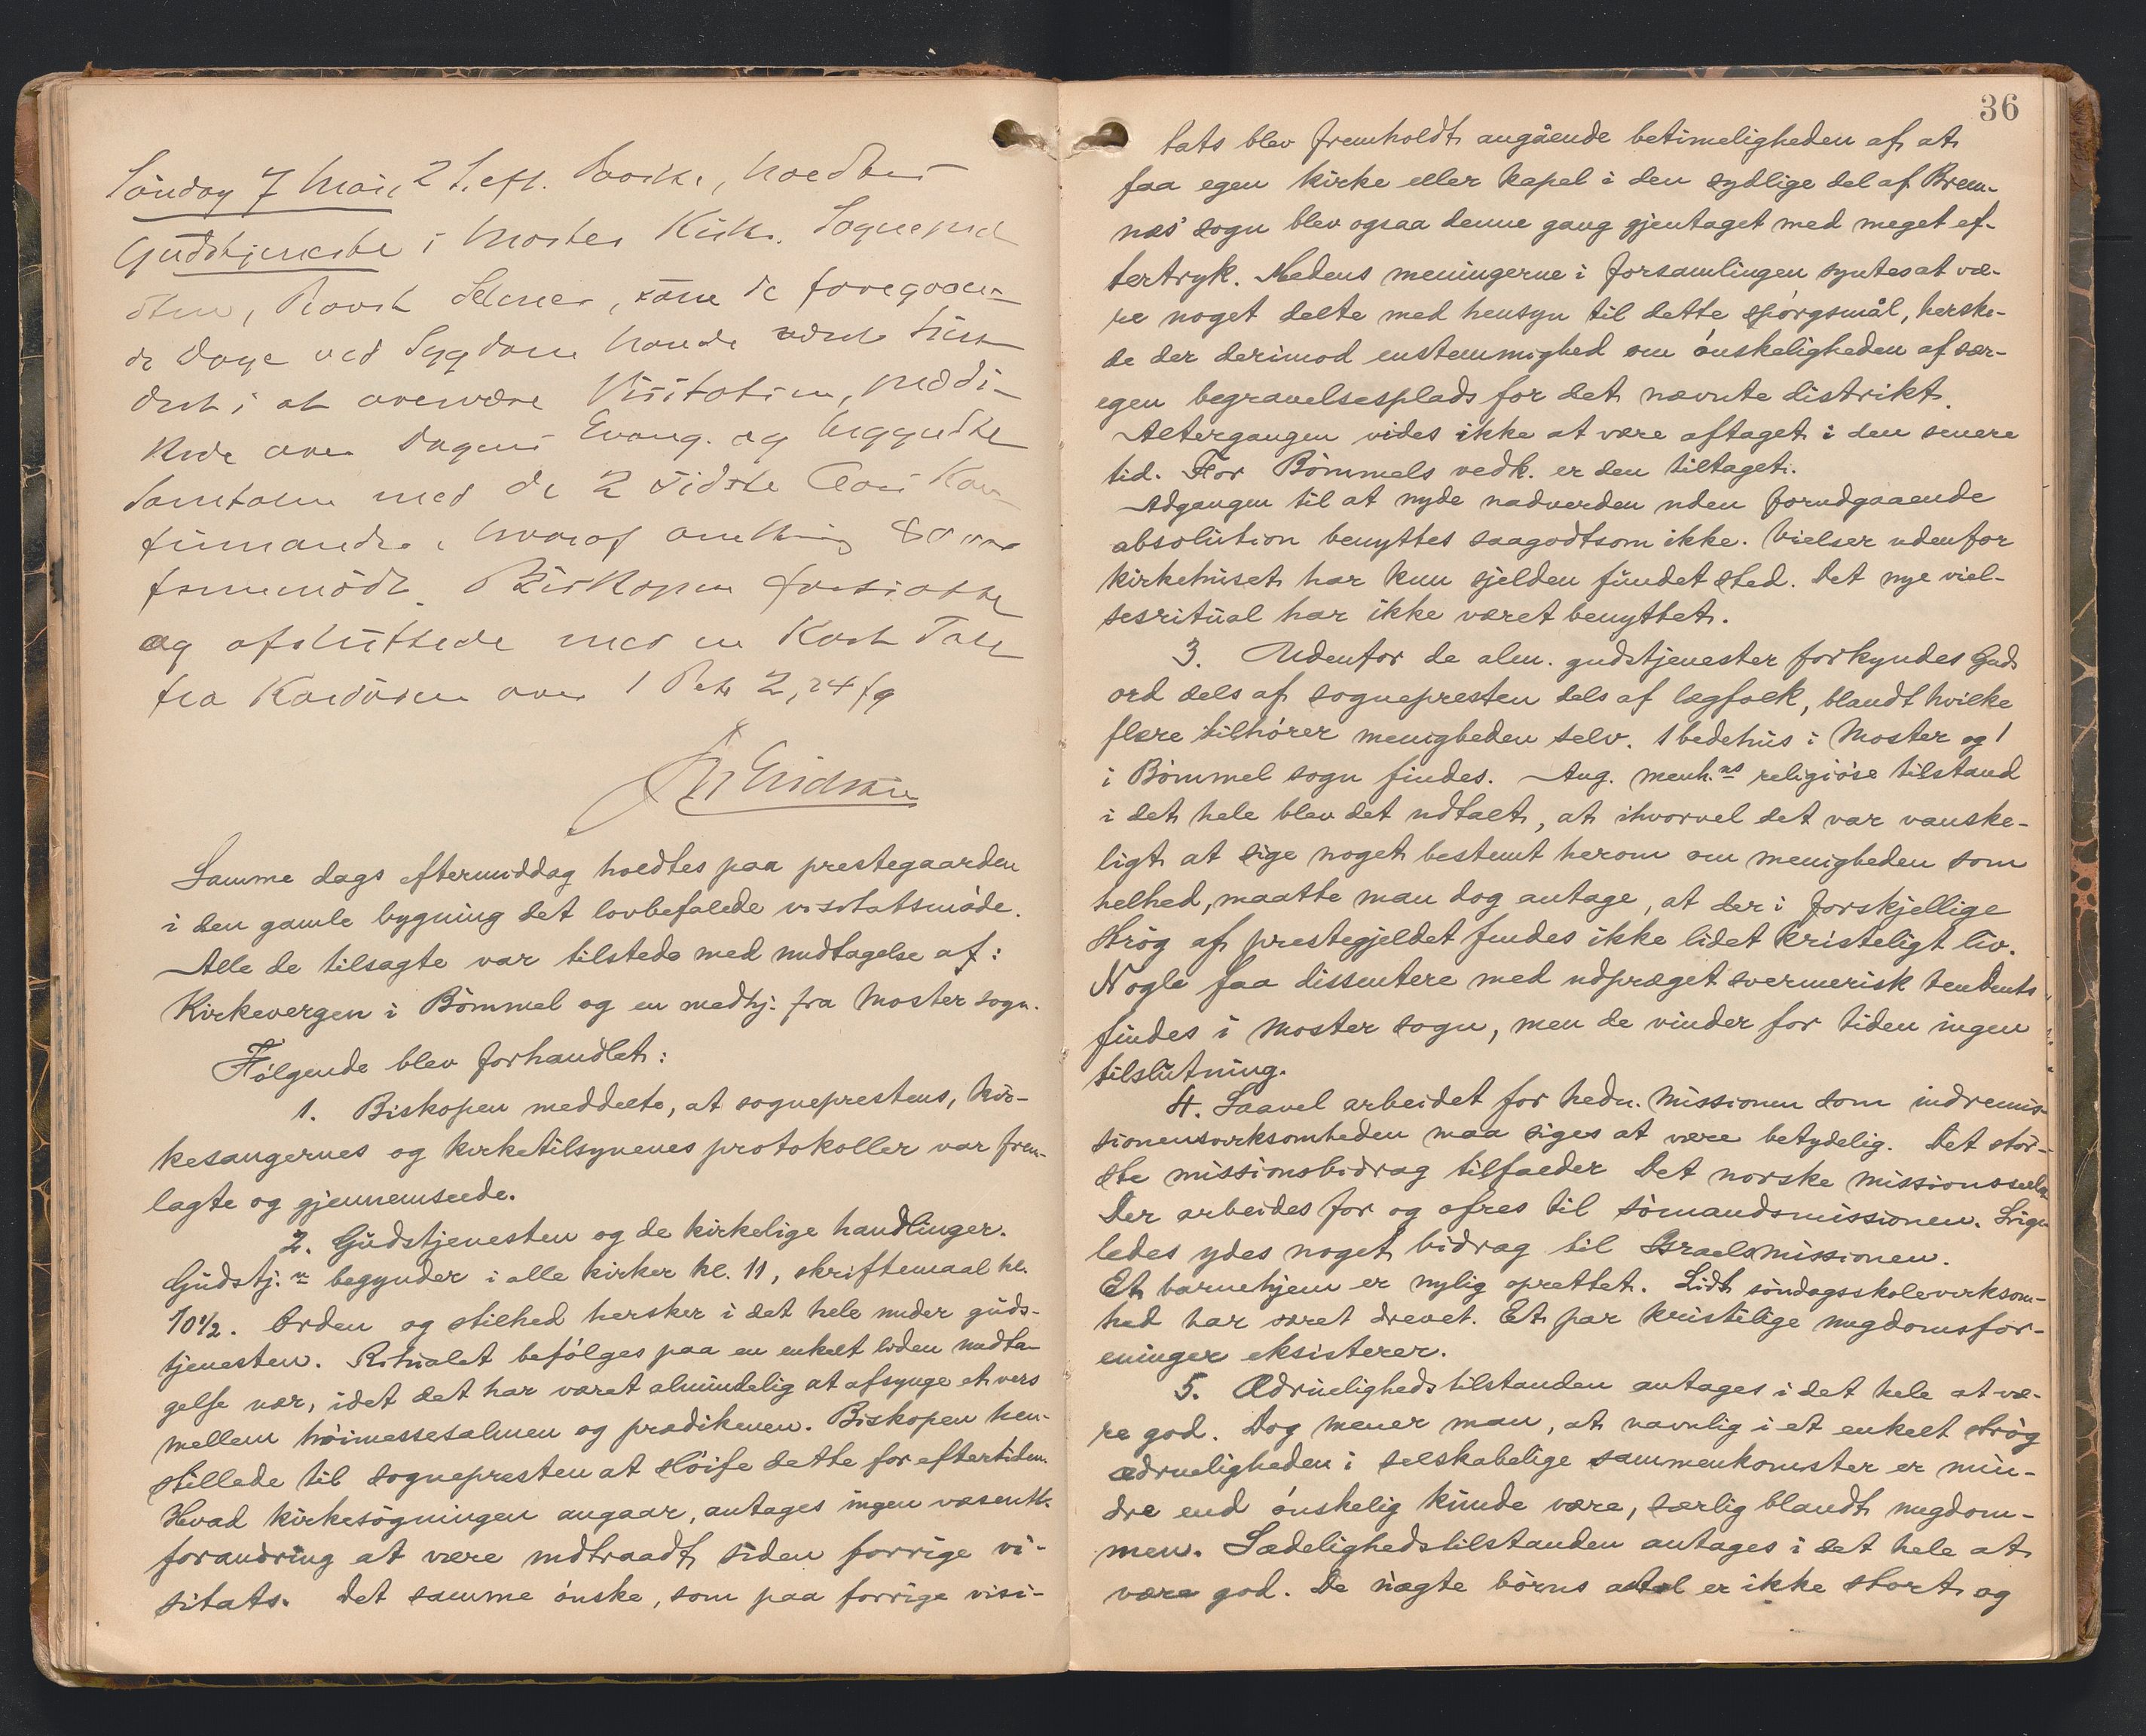 Søndag 7 Mai, 2 S. eft. Paaske, holdtes
Gudstjeneste i Moster Kirke. Sognepræ-
sten, Provst, som de foregaaen-
de Dage ved Sygdom havde været hin-
dret i at overvære Visitatsen, prædi-
kede over Dagens Evang. og begyndte
Samtalen med de 2 sidste Aars Kon-
firmander, hvoraf omkring 80 var
fremmødt. Biskopen fortsatte
og afsluttede med en kort Tale
fra Kordøren over 1 Pet. 2, 24 fg
Samme dags eftermiddag holdtes paa prestegaarden
i den gamle bygning det lovbefalede visitatsmøde.
Alle de tilsagte var tilstede med undtagelse af:
Kirkevergen i Bømmel og en medhj. fra Moster sogn.
Følgende blev forhandlet:
1. Biskopen meddelte, at sogneprestens, kir-
kesangernes og kirketilsynenes protokoller var frem-
lagte og gjennemseede.
2. Gudstjenesten og de kirkelige handlinger.
Gudstj.n begynder i alle kirker kl. 11, skriftemaal kl.
10½. Orden og stilhed hersker i det hele under guds-
tjenesten. Ritualet befølges paa en enkelt liden undta-
gelse nær, idet det har været almindelig at afsynge et vers
mellem høimessesalmen og prædikenen. Biskopen hen-
stillede til sognepresten at sløife dette for eftertiden.
Hvad kirkesøgningen angaar, antages ingen væsentl.
forandring at være indtraadt siden forrige vi-
sitats. Det samme ønske, som paa forrige visi-
36
tats blev fremholdt angående betimeligheden af at
faa egen kirke eller kapel i den sydlige del af Brem-
næs sogn blev ogsaa denne gang gjentaget med meget ef-
tertryk. Medens meningerne i forsamlingen syntes at væ-
re noget delte med hensyn til dette spørgsmål, herske-
de der derimod enstemmighed om ønskeligheden af sær-
egen begravelsesplads for det nævnte distrikt.
Altergangen vides ikke at være aftaget i den senere
tid. For Bømmels vedk. er den tiltaget.
Adgangen til at nyde nadverden uden forudgaaende
absolution benyttes saagodtsom ikke. Vielser udenfor
kirkehuset har kun sjelden fundet sted. Det nye viel-
sesritual har ikke været benyttet.
3. Udenfor de alm. gudstjenester forkyndes Guds
ord dels af sognepresten dels af lægfolk, blandt hvilke
flere tilhører menigheden selv. 1 bedehus i Moster og 1
i Bømmel sogn findes. Ang. menh.ns religiøse tilstand
i det hele blev det udtalt, at ihvorvel det var vanske-
ligt at sige noget bestemt herom om menigheden som
helhed, maatte man dog antage, at der i forskjellige
strøg af prestegjeldet findes ikke lidet kristeligt liv.
Nogle faa dissentere med udpræget svermerisk tendents
findes i Moster sogn, men de vinder for tiden ingen
tilslutning.
4. Saavel arbeidet for hedn. missionen som indremis-
sionensvirksomheden maa siges at være betydelig. Det stør-
ste missionsbidrag tilfalder Det norske missionsselsk.
Der arbeides for og ofres til sømandsmissionen. Lige-
ledes ydes noget bidrag til Israelsmissionen.
Et barnehjem er nylig oprettet. Lidt søndagsskolevirksom-
hed har været drevet. Et par kristelige ungdomsfor-
eninger eksisterer.
5. Ædruelighedstilstanden antages i det hele at væ-
re god. Dog mener man, at navnlig i et enkelt strøg
ædrueligheden i selskabelige sammenkomster er min-
dre end ønskelig kunde være, særlig blandt ungdom-
men. Sædelighedstilstanden antages i det hele at
være god. De uægte børns antal er ikke stort og